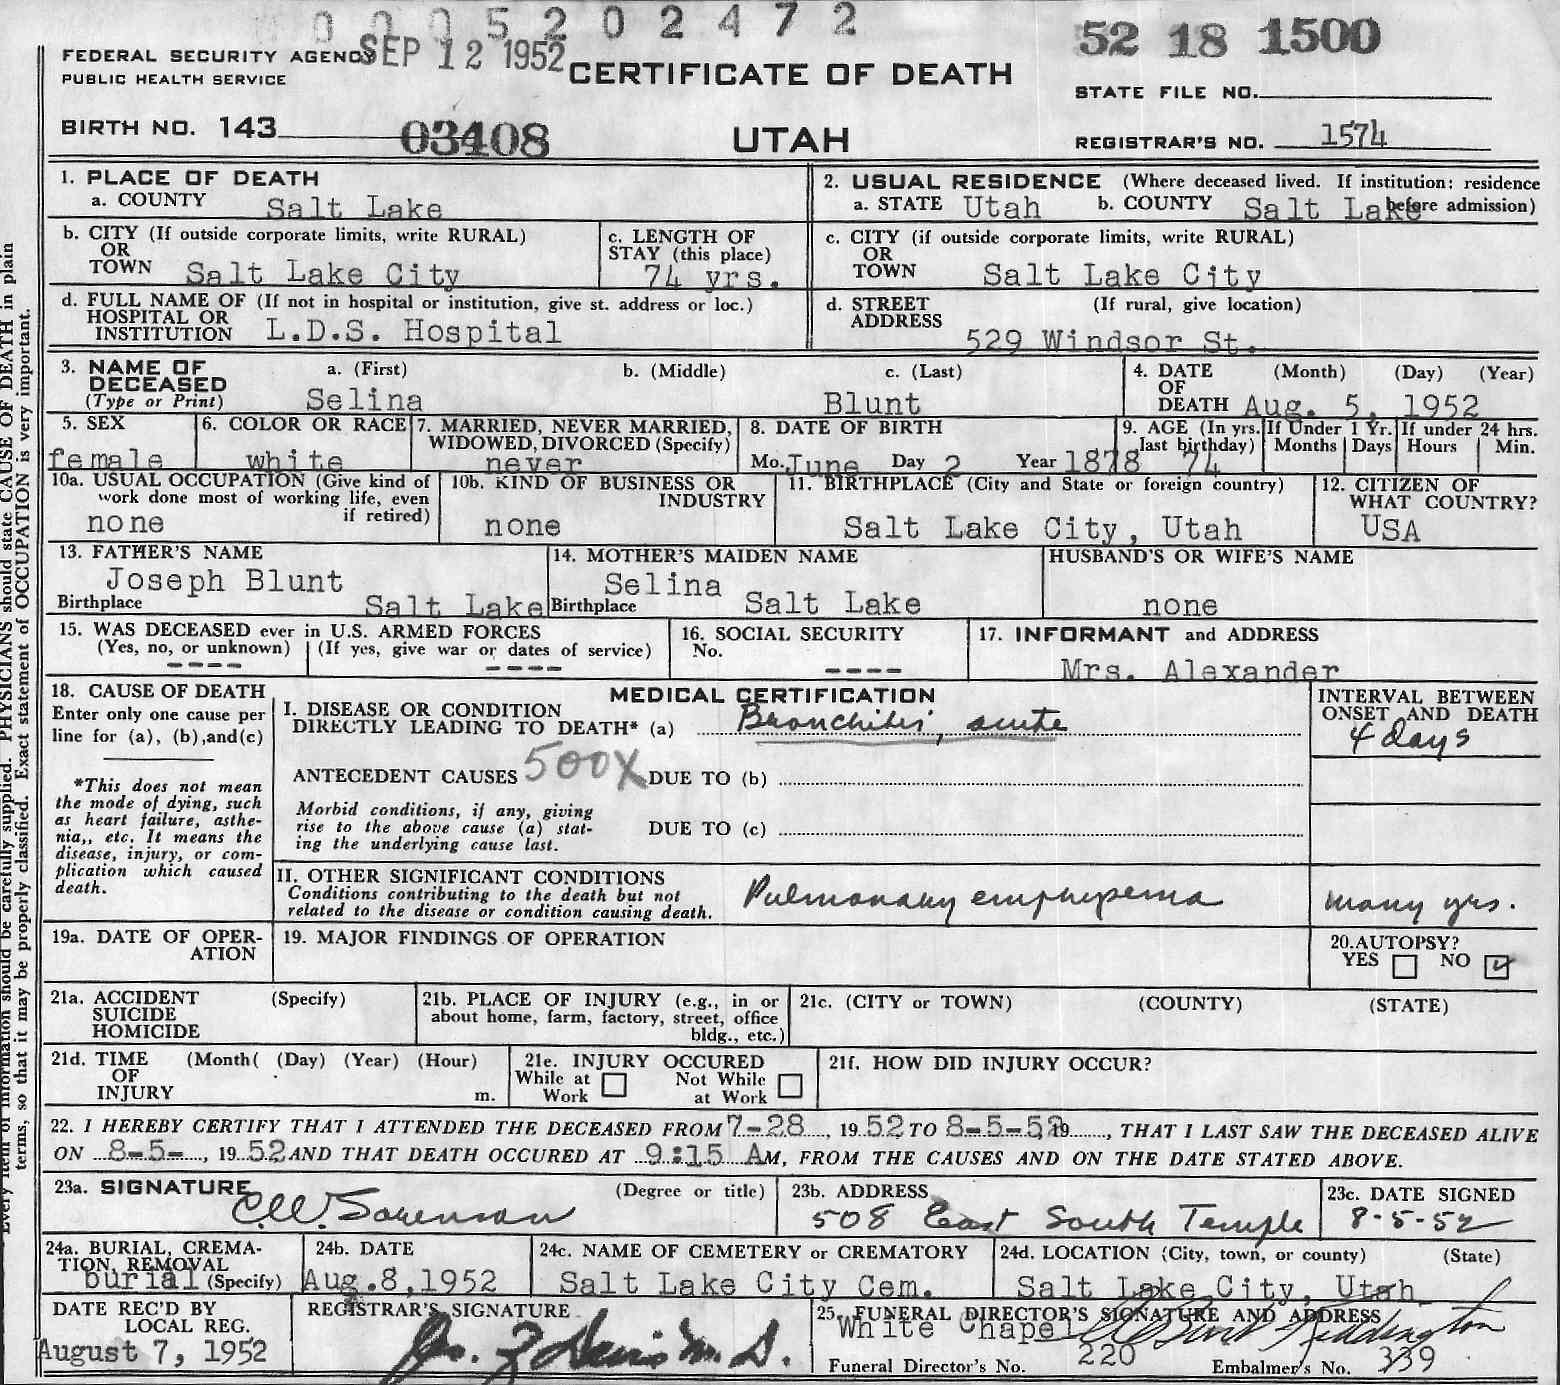 0 0 0 5 2 0 2 4 7 2
52 18 1500
FEDERAL SECURITY AGENCY SEP 12 1952
PUBLIC HEALTH SERVICE
CERTIFICATE OF DEATH
STATE FILE NO.
BIRTH NO. 143 03408
UTAH
REGISTRAR'S NO. 1574
1. PLACE OF DEATH
a. COUNTY Salt Lake
2. USUAL RESIDENCE (Where deceased lived. If institution: residence
before admission)
a. STATE Utah b. COUNTY Salt Lake
b. CITY (If outside corporate limits, write RURAL)
OR
TOWN Salt Lake City
c. LENGTH OF
STAY (this place)
74 yrs.
c. CITY (if outside corporate limits, write RURAL)
OR
TOWN Salt Lake City
d. FULL NAME OF (If not in hospital or institution, give st. address or loc.)
HOSPITAL OR
INSTITUTION L.D.S. Hospital
d. STREET (If rural, give location)
ADDRESS
529 Windsor St.
3. NAME OF
DECEASED
(Type or Print)
a. (First) b. (Middle) c. (Last)
Selina Blunt
4. DATE (Month) (Day) (Year)
OF
DEATH Aug. 5, 1952
5. SEX
female
6. COLOR OR RACE
white
7. MARRIED, NEVER MARRIED,
WIDOWED, DIVORCED (Specify)
never
8. DATE OF BIRTH
Mo. June Day 2 Year 1878
9. AGE (In yrs.
last birthday)
74
If Under 1 Yr.
Months Days
If under 24 hrs.
Hours Min.
10a. USUAL OCCUPATION (Give kind of
work done most of working life, even
if retired)
none
10b. KIND OF BUSINESS OR
INDUSTRY
none
11. BIRTHPLACE (City and State or foreign country)
Salt Lake City, Utah
12. CITIZEN OF
WHAT COUNTRY?
USA
13. FATHER'S NAME
Joseph Blunt
Birthplace Salt Lake
14. MOTHER'S MAIDEN NAME
Selina
Birthplace Salt Lake
HUSBAND'S OR WIFE'S NAME
none
15. WAS DECEASED ever in U.S. ARMED FORCES
(Yes, no, or unknown) (If yes, give war or dates of service)
---- ----
16. SOCIAL SECURITY
No.
----
17. INFORMANT and ADDRESS
Mrs. Alexander
18. CAUSE OF DEATH
Enter only one cause per
line for (a), (b),and(c)
*This does not mean
the mode of dying, such
as heart failure, asthe-
nia,, etc. It means the
disease, injury, or com-
plication which caused
death.
MEDICAL CERTIFICATION
I. DISEASE OR CONDITION
DIRECTLY LEADING TO DEATH* (a) Bronchitis, acute
INTERVAL BETWEEN
ONSET AND DEATH
4 days
ANTECEDENT CAUSES 500X DUE TO (b)
Morbid conditions, if any, giving
rise to the above cause (a) stat-
ing the underlying cause last.
DUE TO (c)
II. OTHER SIGNIFICANT CONDITIONS
Conditions contributing to the death but not
related to the disease or condition causing death.
Pulmonary emphysema many yrs.
19a. DATE OF OPER-
ATION
19. MAJOR FINDINGS OF OPERATION
20.AUTOPSY?
YES NO
21a. ACCIDENT (Specify)
SUICIDE
HOMICIDE
21b. PLACE OF INJURY (e.g., in or
about home, farm, factory, street, office
bldg., etc.)
21c. (CITY or TOWN) (COUNTY) (STATE)
21d. TIME (Month( (Day) (Year) (Hour)
OF
INJURY m.
21e. INJURY OCCURED
While at Not While
Work at Work
21f. HOW DID INJURY OCCUR?
22. I HEREBY CERTIFY THAT I ATTENDED THE DECEASED FROM 7-28, 1952 TO 8-5-52, 19, THAT I LAST SAW THE DECEASED ALIVE
ON 8-5-, 1952 AND THAT DEATH OCCURED AT 9:15 AM, FROM THE CAUSES AND ON THE DATE STATED ABOVE.
23a. SIGNATURE (Degree or title)
C.W. Sorenson
23b. ADDRESS
508 East South Temple
23c. DATE SIGNED
8-5-52
24a. BURIAL, CREMA-
TION, REMOVAL
burial (Specify)
24b. DATE
Aug.8,1952
24c. NAME OF CEMETERY or CREMATORY
Salt Lake City Cem.
24d. LOCATION (City, town, or county) (State)
Salt Lake City, Utah
DATE REC'D BY
LOCAL REG.
August 7, 1952
REGISTRAR'S SIGNATURE
25. FUNERAL DIRECTOR'S SIGNATURE AND ADDRESS
White Chapel
Funeral Director's No. 220 Embalmer's No. 339
Every item of information should be carefully supplied. PHYSICIANS should state CAUSE OF DEATH in plain
terms, so that it may be properly classified. Exact statement of OCCUPATION is very important.